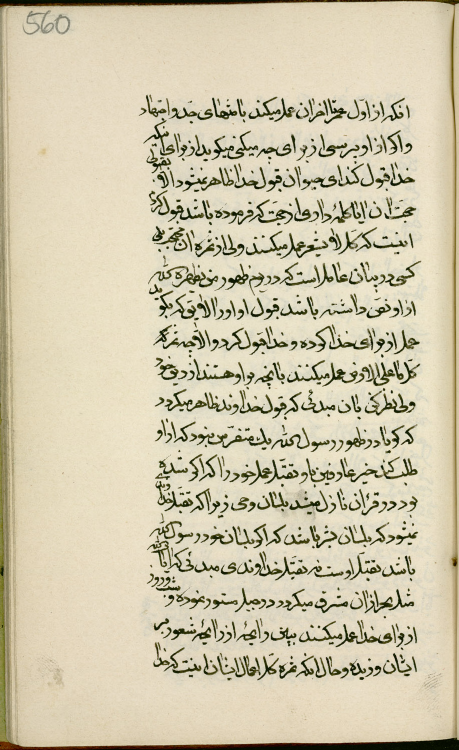 560
انکه از اول عمر تا اخر ان عمل میکند با منتهای جد و اجتهاد
و اکر از او برسی از برای چه میکنی میکوید از برای انکه
خدا قبول کند ای حیوان قول خدا ظاهر نمیشود الا بقول
حجت ان ایا کلمهٔ داری از حجت که فرموده باشد قبول کردم
اینست که کل لا یشعر عمل میکنند ولی از ثمرهٔ ان محتجب
کسی در بیان عامل است که در یوم ظهور من یظهره الله
از او نصی داشته باشد قبول او را و الا لایق که بکوید
عمل از برای خدا کرده و خدا قبول کرد و الا چه ثمر که
کل ما علی الارض عمل میکنند بانچه بر او هستند از دین خود
ولی نظر کن بان مبدئی که قول خداوند ظاهر میکردد
که کویا در ظهور رسول الله یک متنفس نبود که از او
طلب کند خیر عارفین باو تقبل عمل خود را که اکر شده
بود در قران نازل میشد بلسان وحی زیرا که تقبل خدا
نمیشود که بلسان بشر باشد که اکر بلسان خود رسول الله
باشد تقبل اوست نه تقبل خداوندی مبدئی که ایات الله
مثل بحر از ان مشرق میکردد در جبل مستور نموده و شب و روز
از برای خدا عمل میکنند ببین رایحهٔ از رایحهٔ شعور بر
ایشان وزیده و حال انکه ثمرهٔ کل اعمال ایشان اینست که خدا